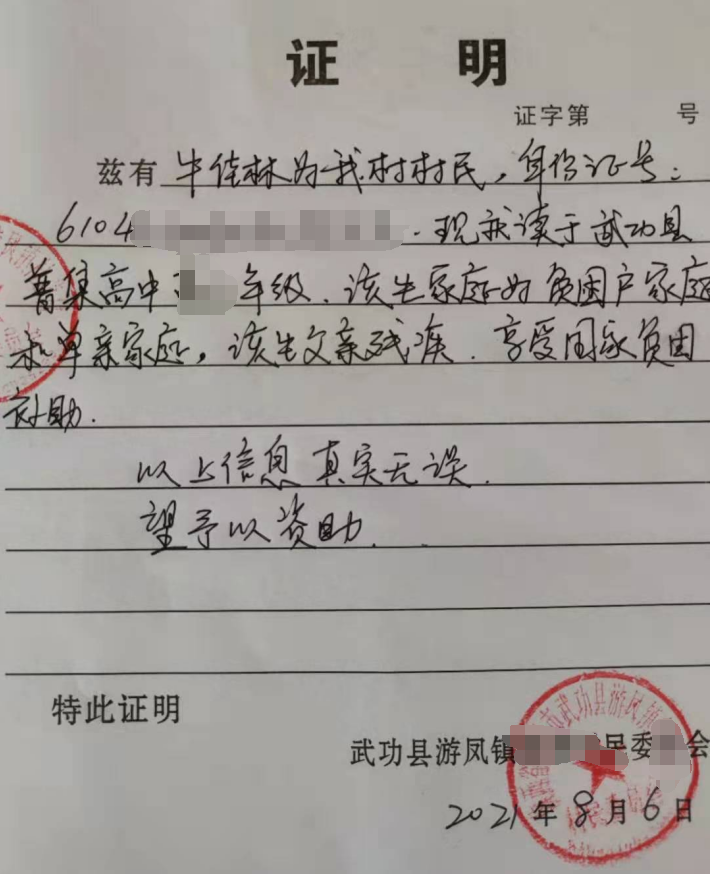 证 明
证字第 号
兹有 牛佳林为我村村民，身份证号：
6104 . 现就读于武功县
普集高中 年级. 该生家庭为贫困户家庭
和单亲家庭，该生父亲残疾. 享受国家贫困
补助.
以上信息真实无误.
望予以资助.
特此证明
武功县游凤镇 民委 会
2021年8月6日
市武功县游凤镇